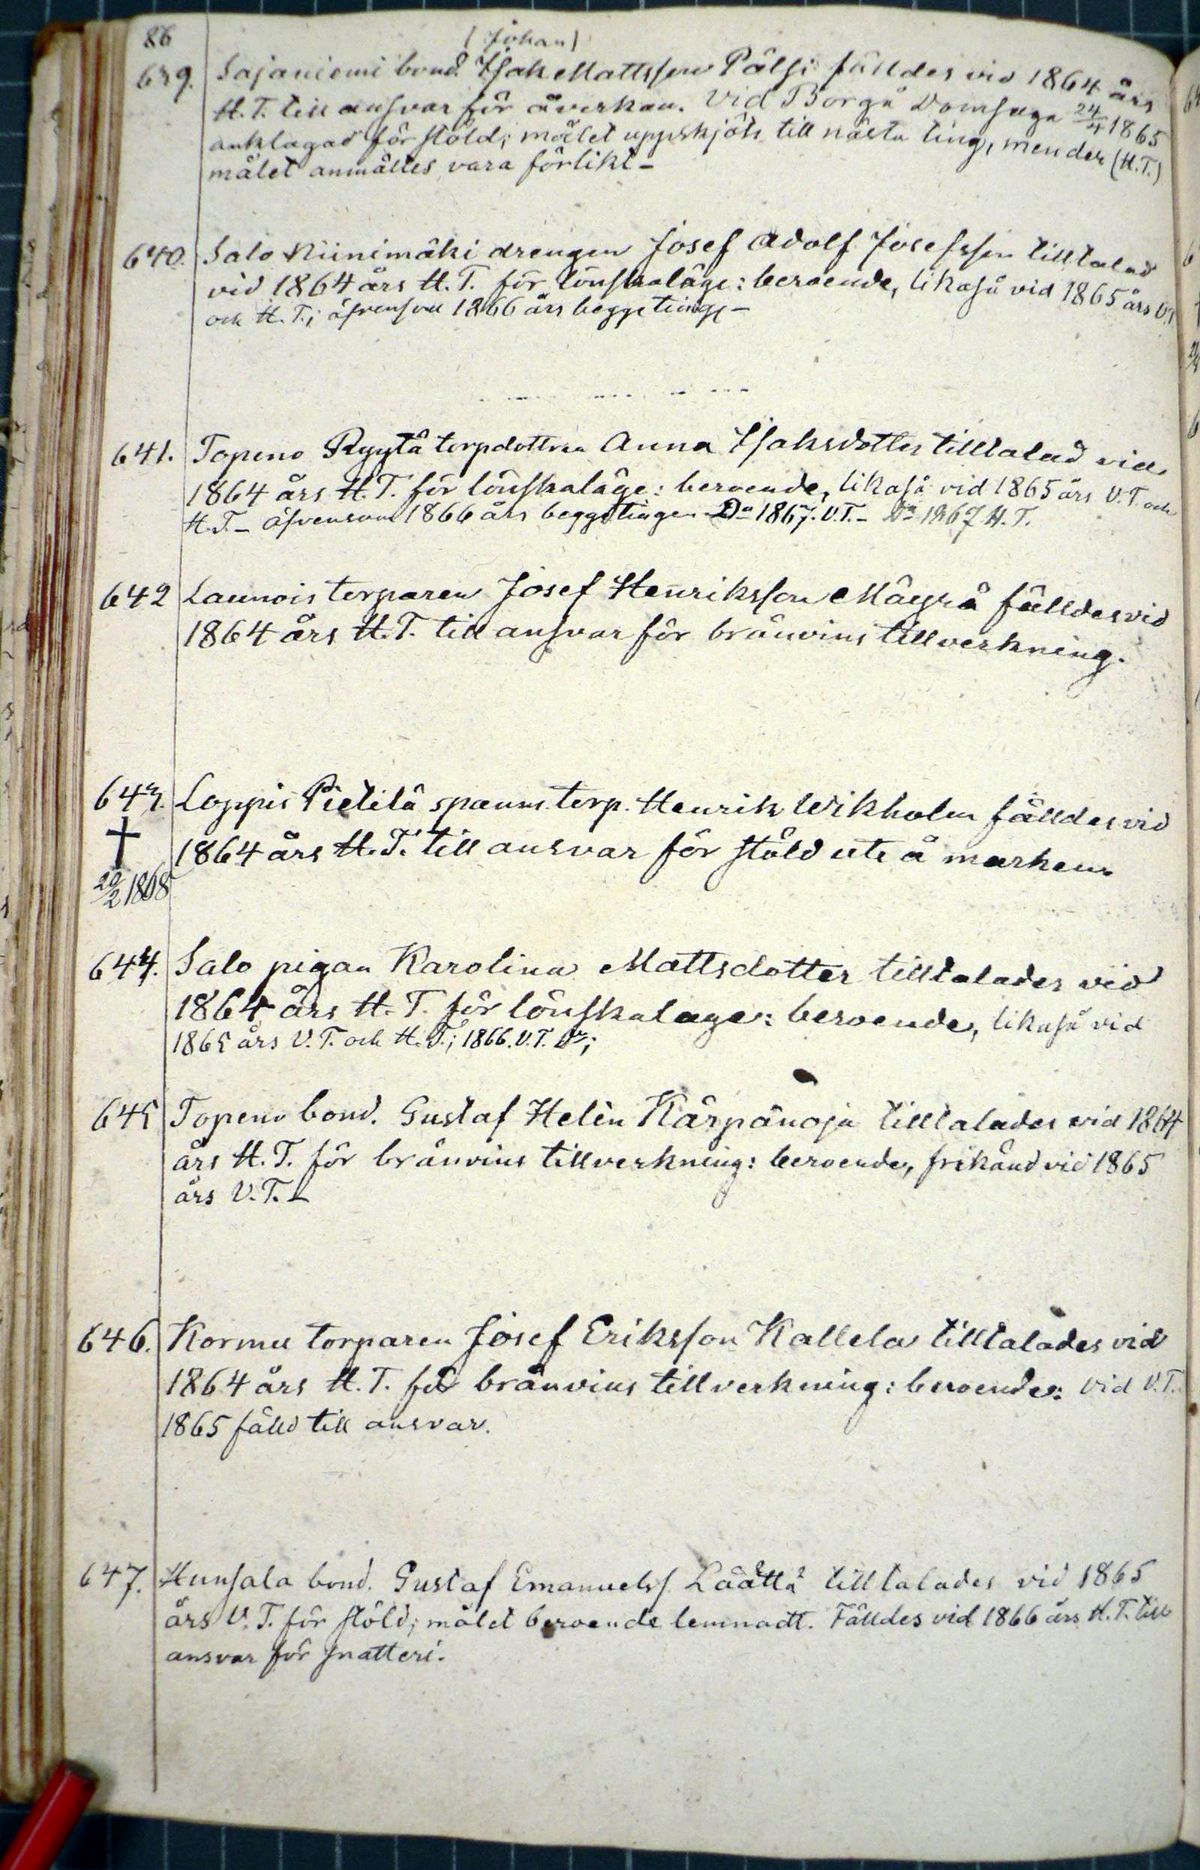 86
(Johan)
639. Sajaniemi bond. Isak Mattsson Pälsi fälldes vid 1864 års
H. T. till ansvar för åverkan. Vid Borgå Domsaga 24/4 1865
anklagad för stöld; målet uppskjöts till nästa ting, men der (H.T.)
målet anmältes vara förlikt –
640. Salo Niinimäki drengen Josef Adolf Josefsson tilltalad
vid 1864 års H. T. för lönskaläge: beroende, likaså vid 1865 års V.T
och H. T.; äfvensom 1866 års begge ting –
641. Topeno Ryytä torpdottren Anna Isaksdotter tilltalad vid
1864 års H. T. för lönskaläge: beroende, likaså vid 1865 års V. T. och
H. T. – äfvensom 1866 års begge tingen Do 1867. V.T. – Do 1867 H. T.
642 Launois torparen Josef Henriksson Mäyrä fälldes vid
1864 års H. T. till ansvar för bränvins tillverkning.
643. Loppis Pietilä spanm. torp. Henrik Wikholm fälldes vid
† 1864 års H. T. till ansvar för stöld ute å marken.
20/2 1868
644. Salo pigan Karolina Mattsdotter tilltalades vid
1864 års H. T. för lönskalage: beroende, likaså vid
1865 års V. T. och H. T.; 1866. V. T. Do;
645 Topeno bond. Gustaf Helèn Kärpänoja tilltalades vid 1864
års H. T. för bränvins tillverkning: beroende, frikänd vid 1865
års V. T. –
646. Kormu torparen Josef Eriksson Kallela tilltalades vid
1864 års H. T. för bränvins tillverkning: beroende: vid V. T.
1865 fälld till ansvar.
647. Hunsala bond. Gustaf Emanuelss. Läättä tilltalades vid 1865
års V. T. för stöld; målet beroende lemnadt. Fälldes vid 1866 års H. T. till
ansvar för snatteri.